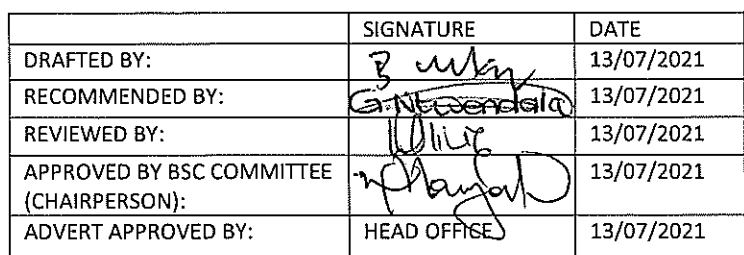 SIGNATURE DATE
DRAFTED BY: 13/07/2021
RECOMMENDED BY: G.Ntwendala 13/07/2021
REVIEWED BY: 13/07/2021
APPROVED BY BSC COMMITTEE
(CHAIRPERSON): 13/07/2021
ADVERT APPROVED BY: HEAD OFFICE 13/07/2021